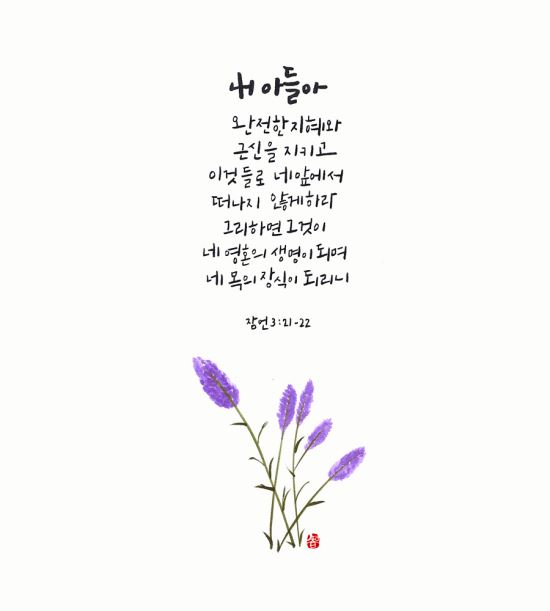 내 아들아
완전한 지혜와
근신을 지키고
이것들로 네 앞에서
떠나지 않게하라
그리하면 그것이
네 영혼의 생명이 되며
네 목의 장식이 되리니
잠언 3:21-22